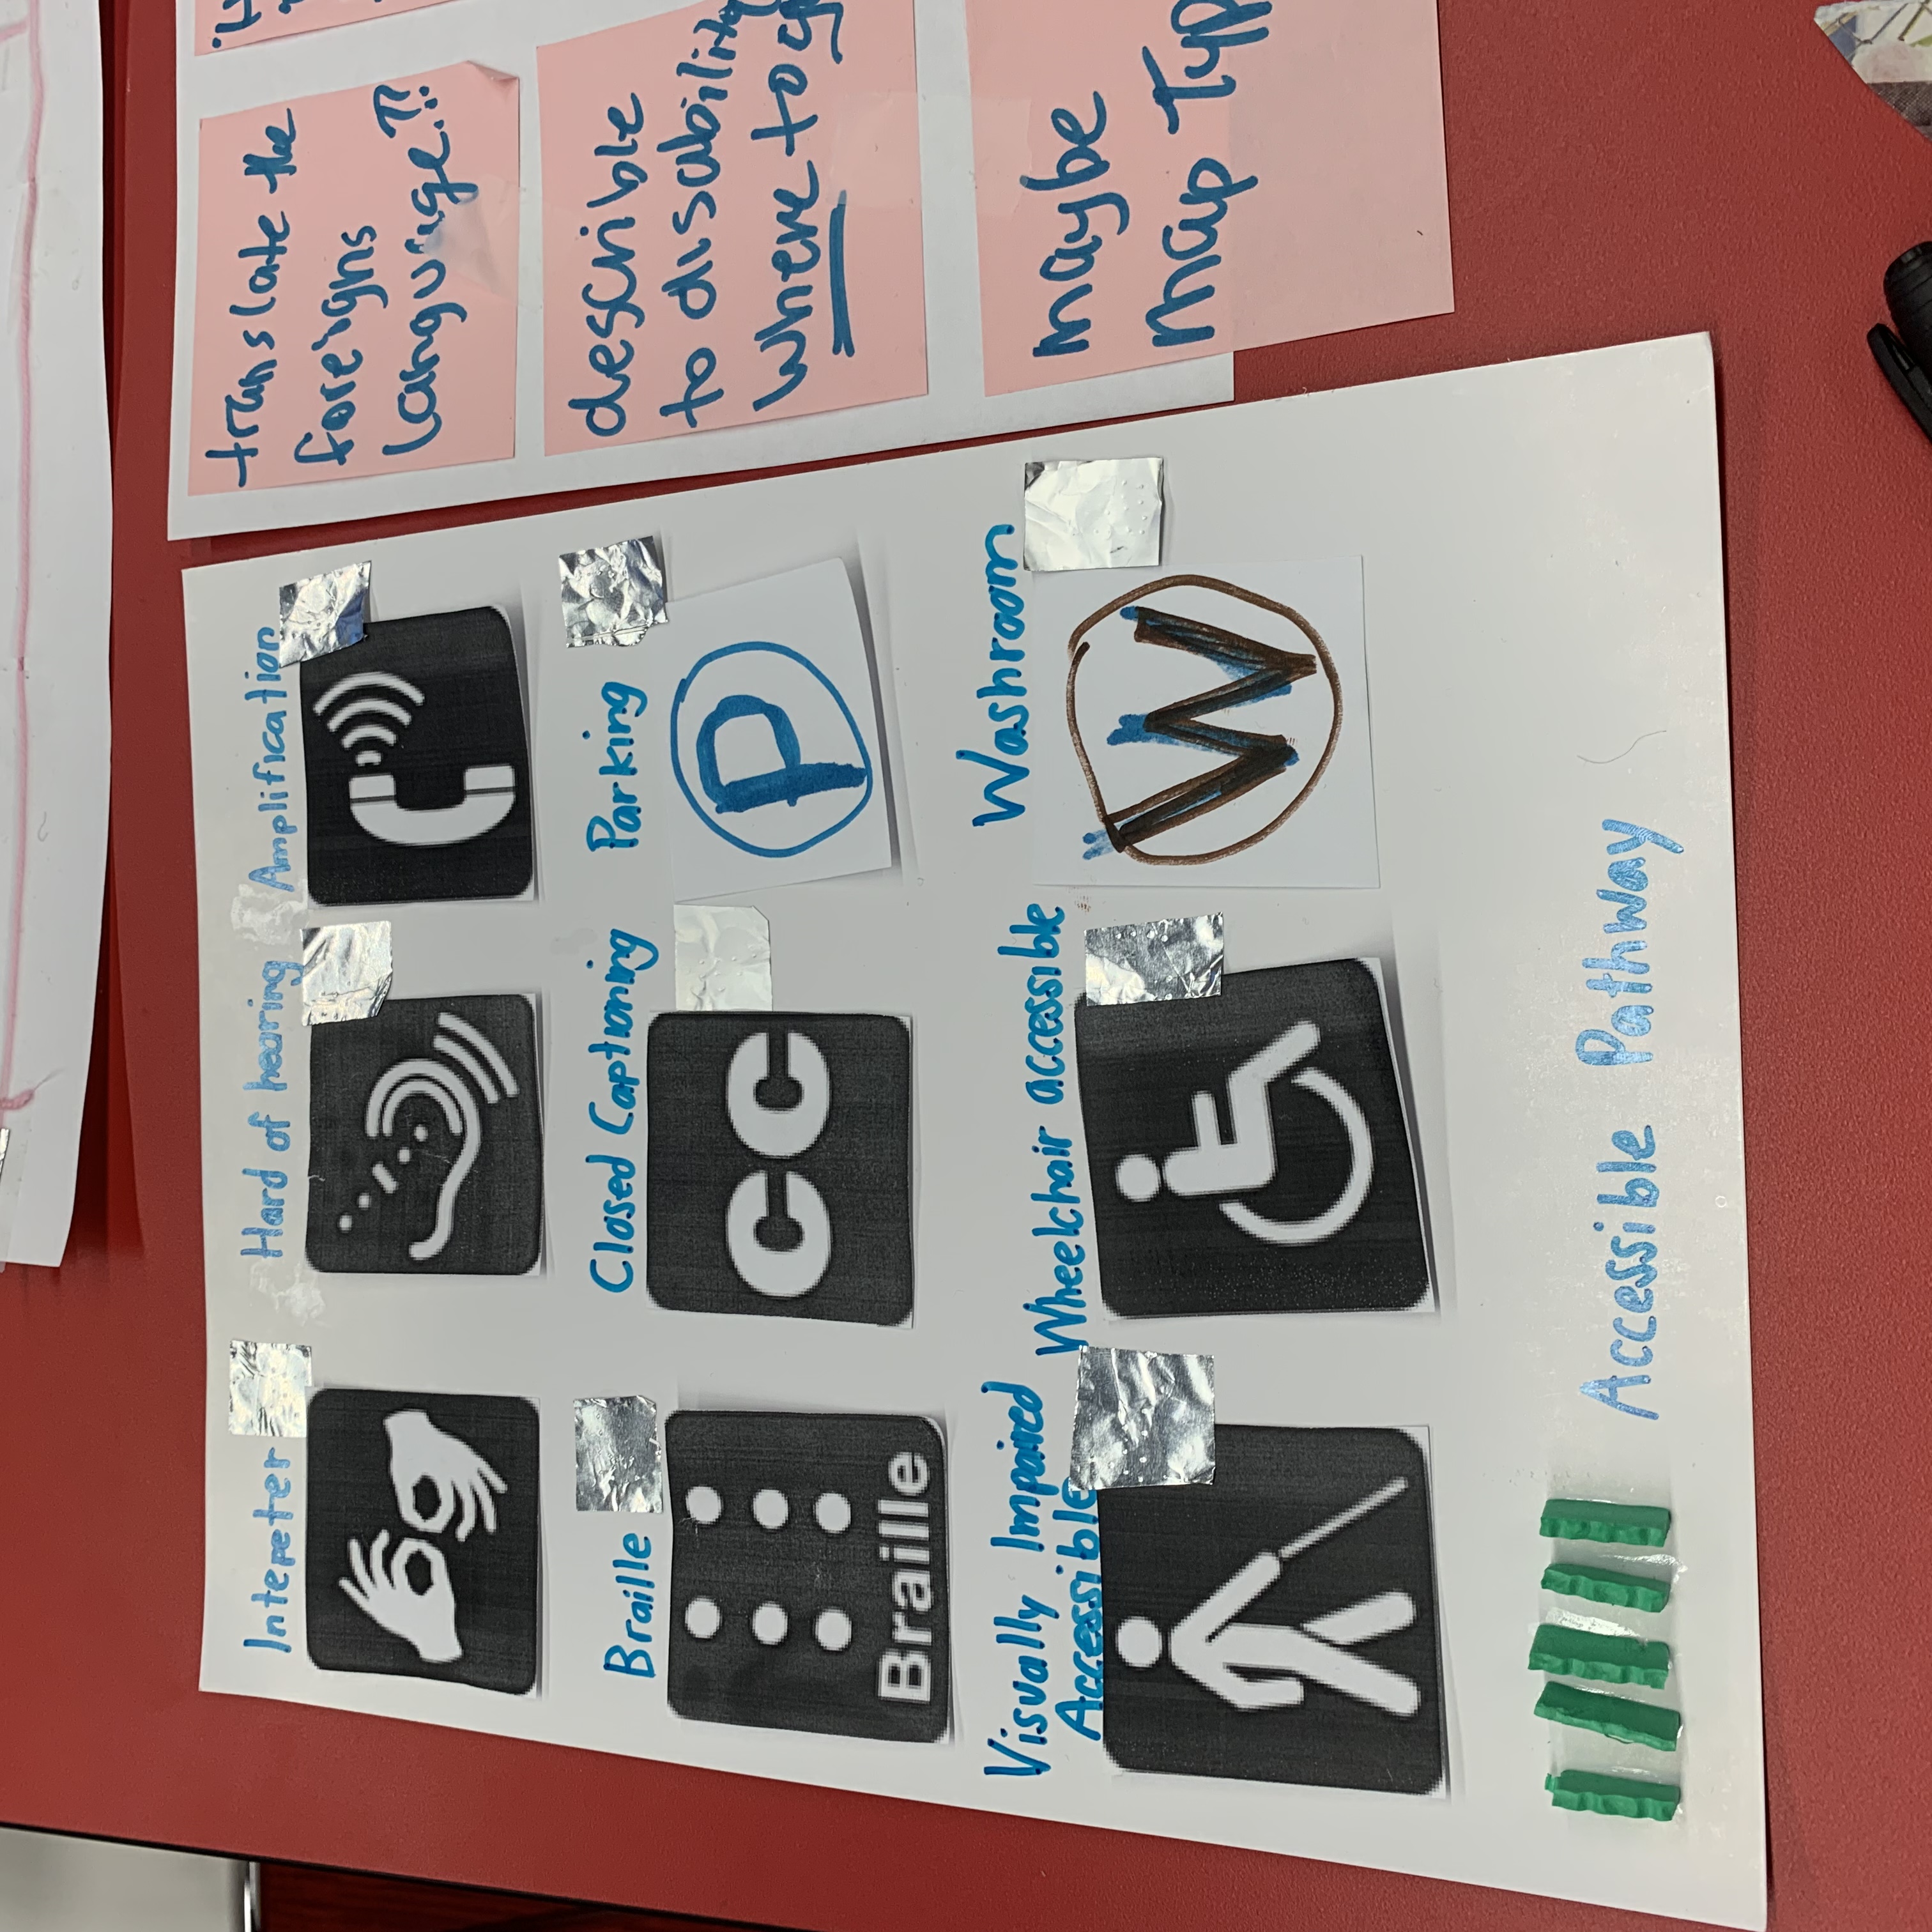 Intepeter
Hard of hearing
Amplification
Braille
Closed Captioning
Parking
Braille
CC
P
Visually Impaired
Accessible
Wheelchair accessible
Washroom
W
Accessible Pathway
translate the
foreigns
language??
describle
to disability
where to
maybe
map Typ